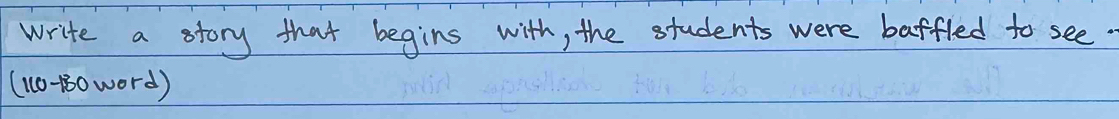 Write a story that begins with, the students were baffled to see ..
(110-130 word)